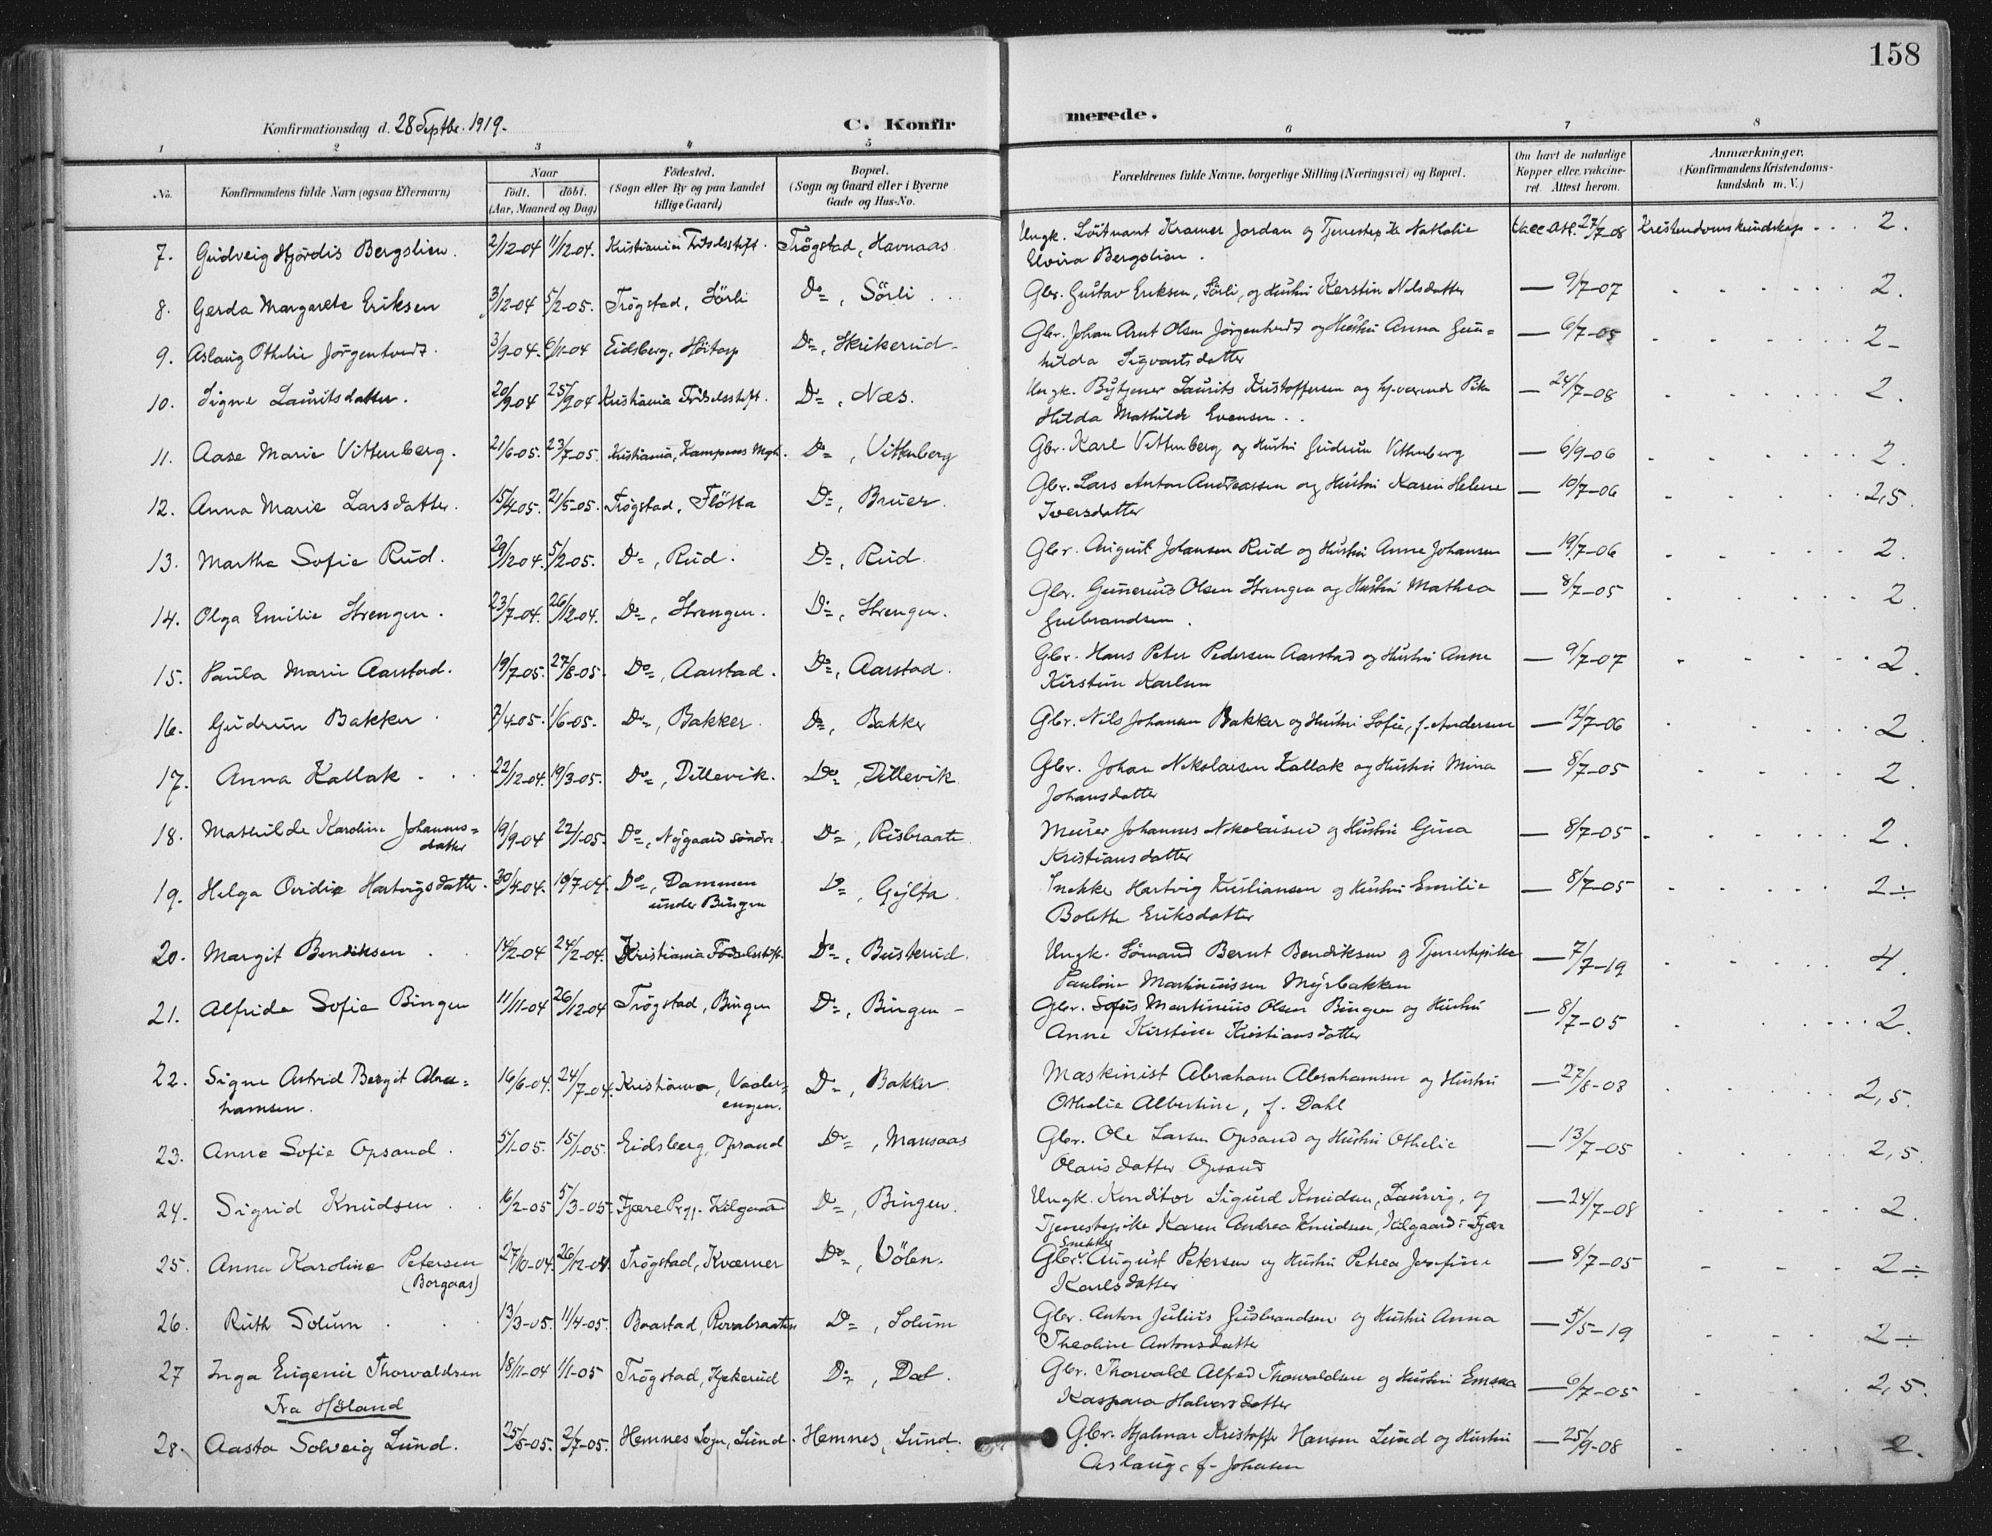 158
Konfirmationsdag d. 28 Septbr. 1919.
C. Konfirmerede.
1 2 3 4 5 6 7 8
No.
Konfirmandens fulde Navn (ogsaa Efternavn)
Naar
født. døbt.
(Aar, Maaned og Dag)
Fødested.
(Sogn eller By og paa Landet
tillige Gaard)
Bopæl.
(Sogn og Gaard eller i Byerne
Gade og Hus-No.
Forældrenes fulde Navne, borgerlige Stilling (Næringsvei) og Bopæl.
Om havt de naturlige
Kopper eller vakcine-
ret. Attest herom.
Anmærkninger.
(Konfirmandens Kristendoms-
kundskab m. V.)
7. Gudveig Hjördis Bergslien. 2/12-04 11/12-04. Kristiania Födselsstift. Trögstad, Havnaas Ungk. Löitnant Kramer Jordan og Tjenestepike Nathalie Vacc. Att. 27/7-08 Kristendomskundskap . . . 2.
Elvira Bergslien.
8. Gerda Margarete Eriksen 3/12-04 5/2-05. Trögstad, Sörli Do, Sörli Gbr. Gustav Eriksen, Sörli, og Hustru Kerstin Nilsdatter — 9/7-07 2.
9. Aslaug Othelie Jörgentvedt. 3/9-04. 6/11-04 Eidsberg, Höitorp Do, Skrikerud Gbr. Johan Arnt Olsen Jörgentvedt og Hustru Anna Gun=
hilda Sigvartsdatter — 6/7-05 2-
10. Signe Lauritsdatter. 20/9-04 25/9-04 Kristiania Födselsstift. Do, Næs. Ungk. Bytjener Laurits Kristoffersen og hj.værende Pike — 24/7-08 2.
Hilda Mathilde Evensen.
11. Aase Marie Vittenberg. 21/6-05. 23/7-05. Kristiania, Kampens Mgh. Do, Vittenberg Gbr. Karl Vittenberg og Hustru Gudrun Vittenberg — 6/9-06 2.
12. Anna Marie Larsdatter. 15/4-05. 21/5-05. Trögstad, Flötta Do, Bruer. Gbr. Lars Anton Andreassen og Hustru Karen Helene — 10/7-06 2,5.
Iversdatter
13. Martha Sofie Rud. 29/12-04. 5/2-05. Do, Rud. Do, Rud. Gbr. August Johansen Rud og Hustru Anne Johansen — 19/7-06 2.
14. Olga Emilie Strengen. 23/7-04. 26/12-04. Do, Strengen. Do, Strengen. Gbr. Gunerius Olsen Strengen og Hustru Mathea — 8/7-05 2.
Gulbrandsen.
15. Paula Marie Aarstad. 19/7-05. 27/8-05. Do, Aarstad. Do, Aarstad. Gbr. Hans Peter Pedersen Aarstad og Hustru Anne — 9/7-07 2.
Kirstine Karlsen
16. Gudrun Bakker. 7/4-05. 1/6-05. Do, Bakker. Do, Bakker Gbr. Nils Johansen Bakker og Hustru Sofie, f. Andersen — 12/7-06 2.
17. Anna Kallak. 22/12-04. 19/3-05. Do, Dillevik. Do, Dillevik Gbr. Johan Nikolaisen Kallak og Hustru Mina — 8/7-05 2.
Johansdatter
18. Mathilde Karoline Johannes=
datter 19/9-04 22/1-05. Do, Nygaard söndre Do, Risbraate Murer Johannes Nikolaisen og Hustru Gina — 8/7-05 2.
Kristiansdatter
19. Helga Ovidie Hartvigsdatter. 30/4-04. 10/7-04. Do, Dammen
under Bingen Do, Gylta Snekker Hartvig Kristiansen og Hustru Emilie — 8/7-05 2÷
Bolette Eriksdatter
20. Margit Bendiksen 14/2-04 24/2-04. Kristiania Födselsstift. Do, Busterud. Ungk. Sömand Bernt Bendiksen og Tjenestepike — 7/7-19 4.
Pauline Martinussen Myrbakken
21. Alfride Sofie Bingen 11/11-04 26/12-04 Trögstad, Bingen Do, Bingen Gbr. Sofus Martinius Olsen Bingen og Hustru — 8/7-05 2.
Anne Kirstine Kristiansdatter
22. Signe Astrid Bergit Abra=
hamsen. 16/6-04. 24/7-04. Kristiania, Vaaler=
engen. Do, Bakker Maskinist Abraham Abrahamsen og Hustru — 27/8-08 2,5.
Othelie Albertine, f. Dahl
23. Anne Sofie Opsand. 5/1-05. 15/1-05. Eidsberg, Opsand Do, Mansaas Gbr. Ole Larsen Opsand og Hustru Othelie — 13/7-05 2,5.
Olausdatter Opsand
24. Sigrid Knudsen 16/2-05 5/3-05. Fjære Prgj. Kilgaard Do, Bingen. Ungk. Konditor Sigurd Knudsen, Laurvig, og — 24/7-08 2.
Tjenestepike Karen Andrea Knudsen, Kilgaard i Fjære
25. Anna Karoline Petersen
(Borgaas) 27/10-04. 26/12-04. Trögstad, Kværner Do, Völen. Snekker
Gbr. August Petersen og Hustru Petrea Josefine — 8/7-05 2÷
Karlsdatter
26. Ruth Solum 13/3-05. 11/4-05. Baastad, Revabraaten Do, Solum Gbr. Anton Julius Gudbrandsen og Hustru Anna — 5/5-19 2÷
Theoline Antonsdatter
27 Inga Eugenie Thorvaldsen 18/11-04 1/1-05 Trögstad, Kjekerud Do, Dal. Gbr. Thorvald Alfred Thorvaldsen og Hustru Emma — 6/7-05 2,5.
Kaspara Halvorsdatter
Fra Höland
28. Aasta Solveig Lund. 25/5-05. 2/7-05. Hemnes Sogn, Lund. Hemnes, Lund. Gbr. Hjalmar Kristoffer Hansen Lund og Hustru — 25/9-08 2.
Aslaug, f. Johansen